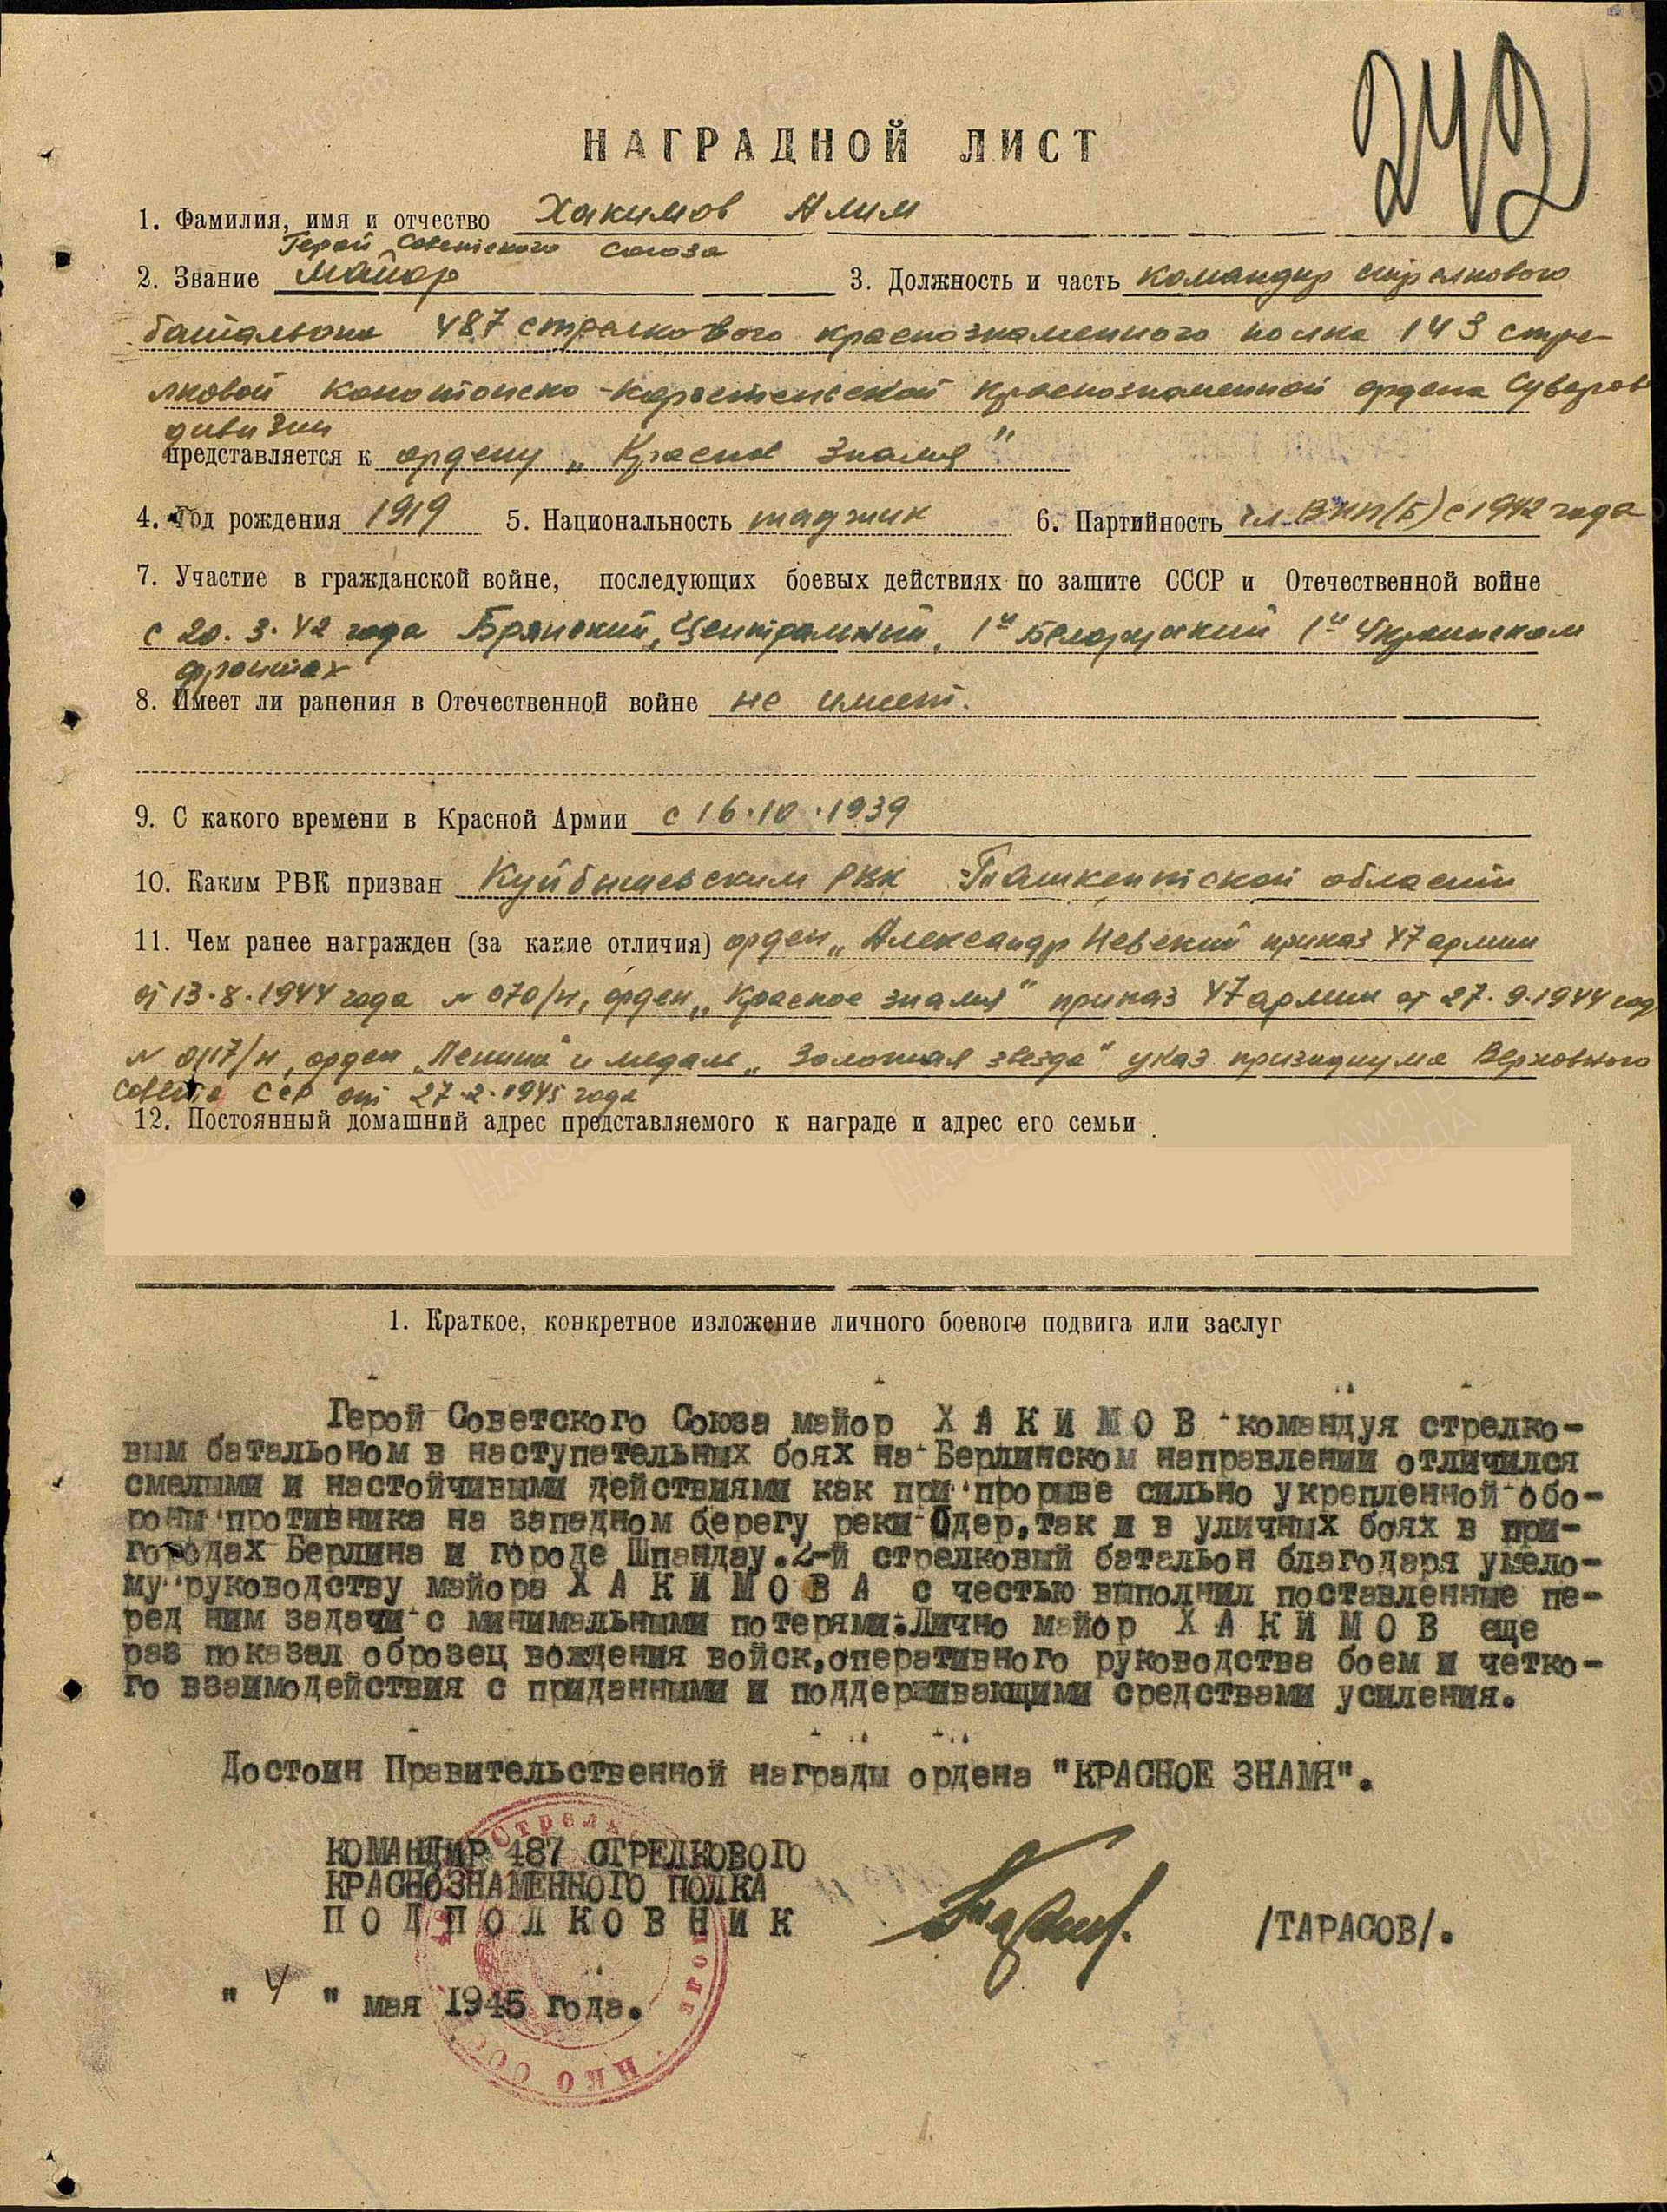 242
НАГРАДНОЙ ЛИСТ
1. Фамилия, имя и отчество Хакимов Алим
Герой Советского Союза
2. Звание майор 3. Должность и часть командир стрелкового
батальона 487 стрелкового краснознаменного полка 143 стре-
лковой Конотопско-Коростенской краснознаменной ордена Суворов
дивизии
представляется к ордену „Красное Знамя"
4. Год рождения 1919 5. Национальность таджик 6. Партийность чл. ВКП(б) с 1942 года
7. Участие в гражданской войне, последующих боевых действиях по защите СССР и Отечественной войне
с 20.3.42 года Брянский, Центральный, 1й Белорусский 1й Украинском
фронтах
8. Имеет ли ранения в Отечественной войне не имеет.
9. С какого времени в Красной Армии с 16.10.1939
10. Каким РВК призван Куйбышевским РВК Ташкентской области
11. Чем ранее награжден (за какие отличия) орден „Александр Невский приказ 47 армии
от 13.8.1944 года № 070/н, орден „Красное знамя" приказ 47 армии от 27.9.1944 год
№ 0117/н, орден „Ленина" и медаль „Золотая звезда" указ президиума Верховного
Совета ССР от 27.2.1945 года
12. Постоянный домашний адрес представляемого к награде и адрес его семьи
1. Краткое, конкретное изложение личного боевого подвига или заслуг
Герой Советского Союза майор Х А К И М О В командуя стрелко-
вым батальоном в наступательных боях на Берлинском направлении отличился
смелыми и настойчивыми действиями как при прорыве сильно укрепленной обо-
роны противника на западном берегу реки Одер,так и в уличных боях в при-
городах Берлина и городе Шпандау.2-й стрелковый батальон благодаря умело-
му руководству майора Х А К И М О В А с честью выполнил поставленные пе-
ред ним задачи с минимальными потерями.Лично майор Х А К И М О В еще
раз показал оброзец вождения войск,оперативного руководства боем и четко-
го взаимодействия с приданными и поддерживающими средствами усиления.
Достоин Правительственной награды ордена "КРАСНОЕ ЗНАМЯ".
КОМАНДИР 487 СТРЕЛКОВОГО
КРАСНОЗНАМЕННОГО ПОЛКА
П О Д П О Л К О В Н И К /ТАРАСОВ/.
" 4 " мая 1945 года.
НКО СССР